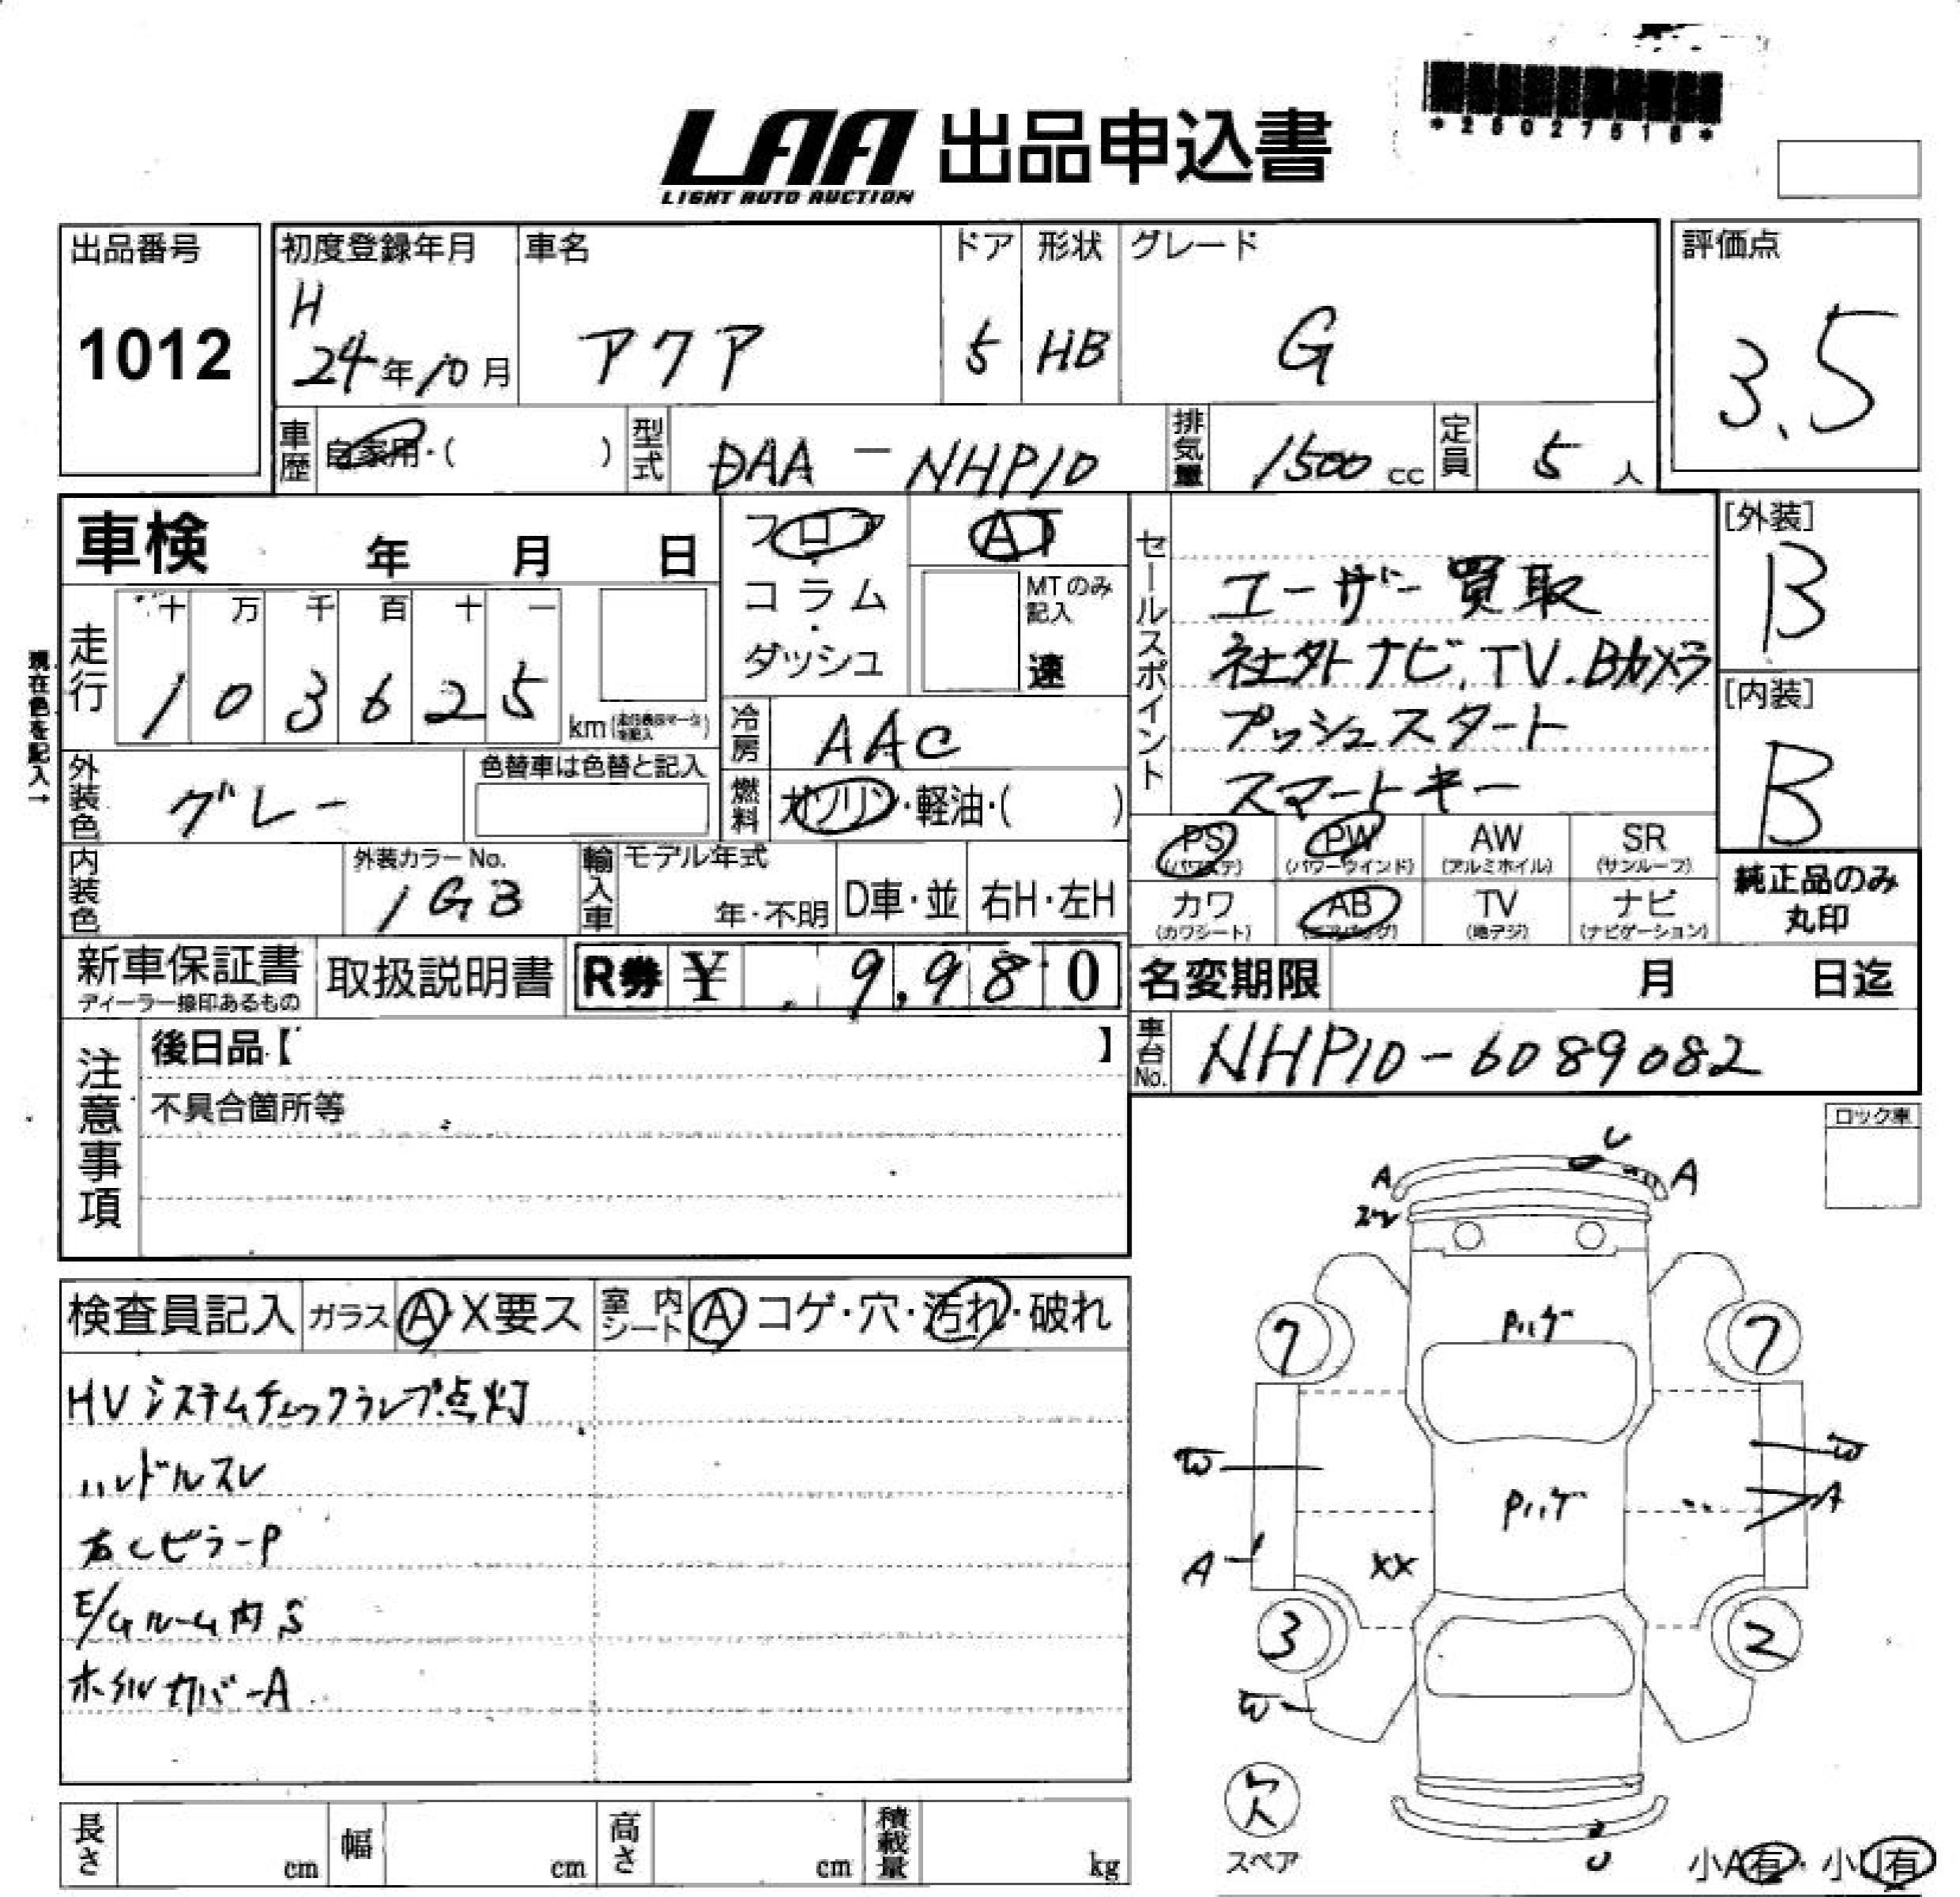 *25027516*
LAA 出品申込書
LIGHT AUTO AUCTION
出品番号
1012
初度登録年月
H
24年10月
車名
アクア
ドア
5
形状
HB
グレード
G
評価点
3.5
車歴
自家用・( )
型式
DAA-NHP10
排気量
1500cc
定員
5人
車検 年 月 日
フロア
・
コラム
・
ダッシュ
AT
MTのみ
記入
速
セールスポイント
ユーザー買取
社外ナビ.TV.Bカメラ
プッシュスタート
スマートキー
[外装]
B
[内装]
B
現在色を記入→
走行
十 万 千 百 十 一
1 0 3 6 2 5
km
冷房
AAC
外装色
グレー
色替車は色替と記入
燃料
ガソリン・軽油・( )
PS
(パワステ)
PW
(パワーウインド)
AW
(アルミホイル)
SR
(サンルーフ)
内装色
外装カラーNo.
1G3
輸入車
モデル年式
年・不明
D車・並
右H・左H
カワ
(カワシート)
AB
(エアバッグ)
TV
(地デジ)
ナビ
(ナビゲーション)
純正品のみ
丸印
新車保証書
ディーラー捺印あるもの
取扱説明書
R券 ¥ 9,980
名変期限 月 日迄
車台No.
NHP10-6089082
注意事項
後日品【 】
不具合箇所等
ロック車
U
A
A
検査員記入
ガラス
A・X要ス
室内シート
A コゲ・穴・汚れ・破れ
HVシステムチェックランプ点灯
ハンドルスレ
右CピラーP
E/Gルーム内S
ホイルカバーA
Pハゲ
7
7
W
W
Pハゲ
A
A
XX
3
2
W
欠
スペア
U
小A有・小U有
長さ
cm
幅
cm
高さ
cm
積載量
kg